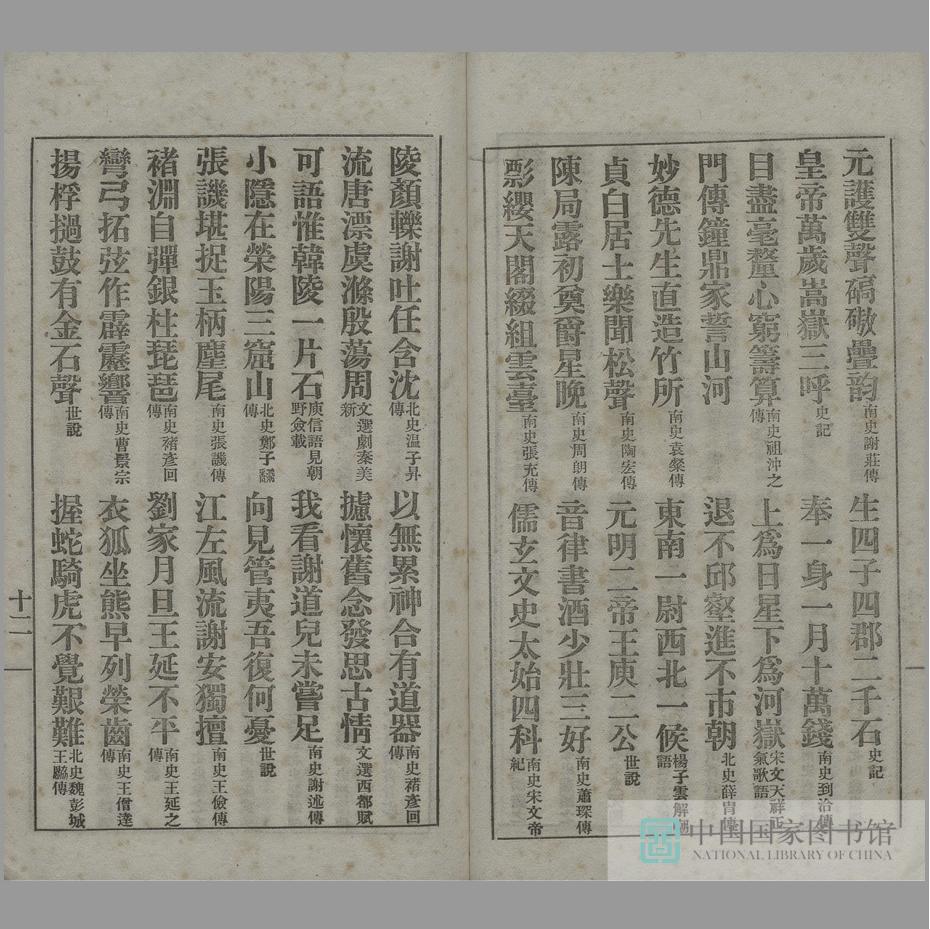 元護雙聲碻磝疊韵南史謝莊傳　生四子四郡二千石史記
皇帝萬歲嵩嶽三呼史記　奉一身一月十萬錢南史到洽傳
目盡毫釐心窮籌算南史祖沖之傳　上爲日星下爲河嶽宋文天祥正氣歌語
門傳鐘鼎家誓山河　退不邱壑進不市朝北史薛胄傳
妙德先生直造竹所南史袁粲傳　東南一尉西北一候楊子雲解嘲語
貞白居士樂聞松聲南史陶宏傳　元明二帝王庾二公世說
陳局露初奠爵星晚南史周朗傳　音律書酒少壯三好南史蕭琛傳
影纓天閣綴組雲臺南史張充傳　儒玄文史太始四科南史宋文帝紀
陵顏轢謝吐任含沈北史温子昇傳　以無累神合有道器南史褚彥回傳
流唐漂虞滌殷蕩周文選劇秦美新　攄懷舊念發思古情文選西都賦
可語惟韓陵一片石庾信語見朝野僉載　我看謝道兒未嘗足南史謝述傳
小隱在滎陽三窟山北史鄭子翻傳　向見管夷吾復何憂世說
張譏堪捉玉柄麈尾南史張譏傳　江左風流謝安獨擅南史王儉傳
褚淵自彈銀柱琵琶南史褚彥回傳　劉家月旦王延不平南史王延之傳
彎弓拓弦作霹靂響南史曹景宗傳　衣狐坐熊早列榮齒南史王僧達傳
揚桴撾鼓有金石聲世說　握蛇騎虎不覺艱難北史魏彭城王勰傳
十二
中国国家图书馆
NATIONAL LIBRARY OF CHINA